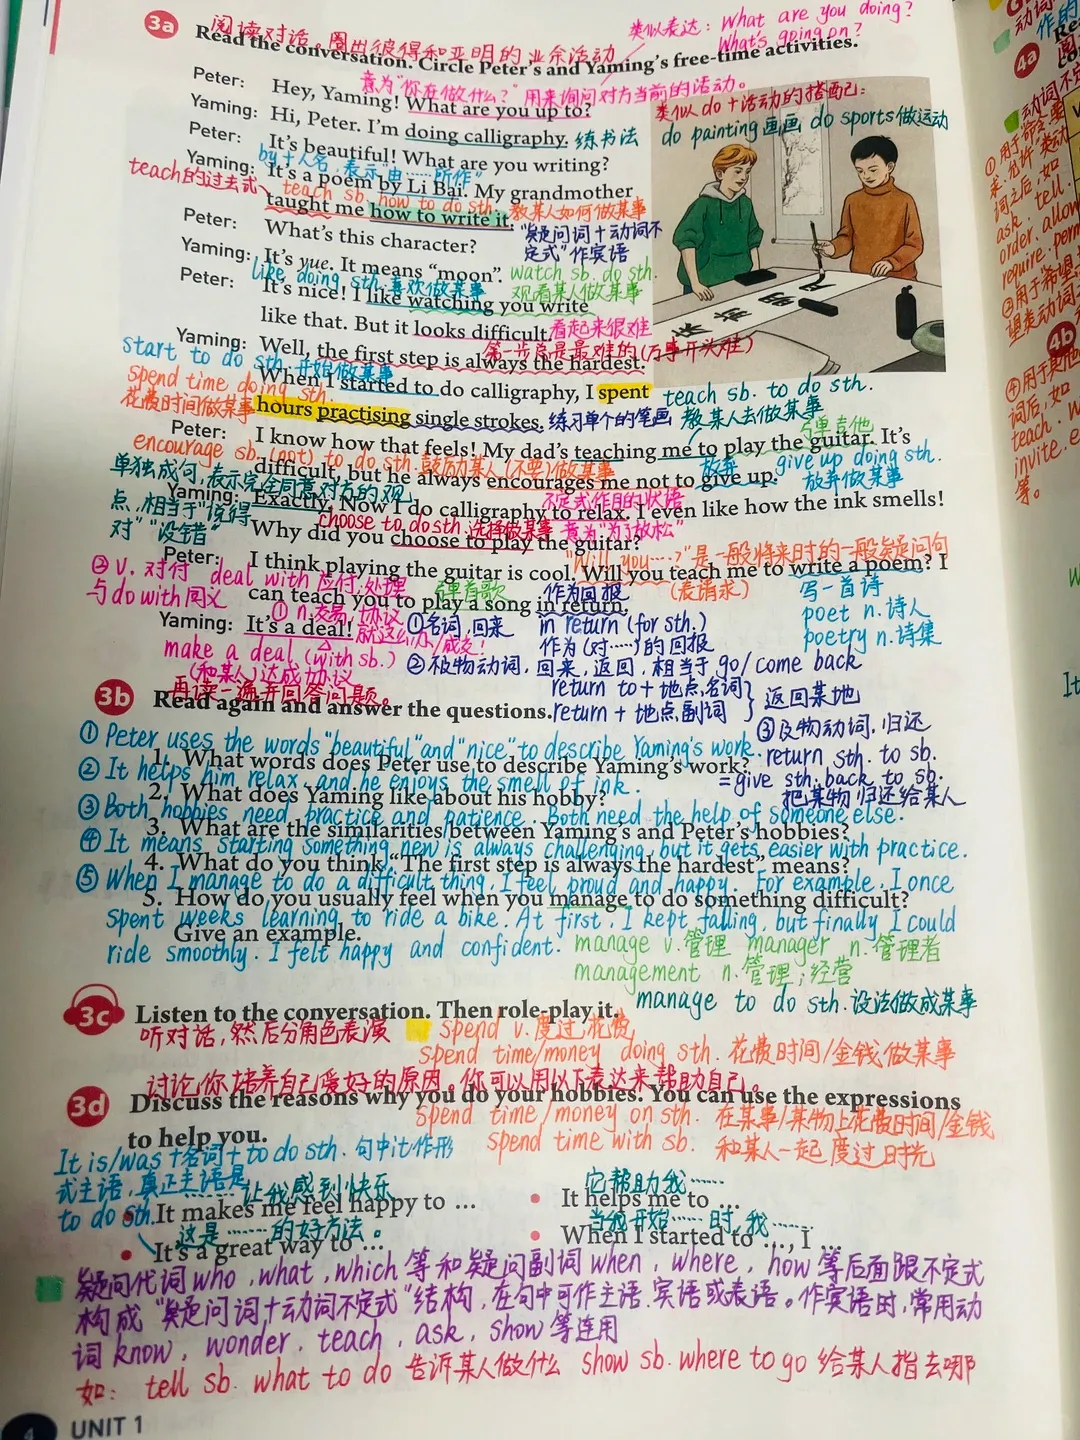 3a 阅读对话,圈出彼得和亚明的业余活动
类似表达: What are you doing?
What's going on?
Read the conversation. Circle Peter's and Yaming's free-time activities.
意为"你在做什么?"用来询问对方当前的活动。
Peter: Hey, Yaming! What are you up to?
类似do+活动的搭配:
Yaming: Hi, Peter. I'm doing calligraphy. 练书法
do painting画画 do sports做运动
Peter: It's beautiful! What are you writing?
by+人名,表示"由……所作"
Yaming: It's a poem by Li Bai. My grandmother
teach的过去式、teach sb. how to do sth. 教某人如何做某事
taught me how to write it.
Peter: What's this character?
"疑问词+动词不
定式"作宾语
Yaming: It's yue. It means "moon".
watch sb. do sth.
观看某人做某事
like doing sth.喜欢做某事
Peter: It's nice! I like watching you write
like that. But it looks difficult.看起来很难
第一步总是最难的(万事开头难)
Yaming: Well, the first step is always the hardest.
start to do sth.开始做某事
When I started to do calligraphy, I spent
teach sb. to do sth.
教某人去做某事
spend time doing sth.
花费时间做某事
hours practising single strokes. 练习单个的笔画
弹吉他
Peter: I know how that feels! My dad's teaching me to play the guitar. It's
encourage sb.(not) to do sth.鼓励某人(不要)做某事
放弃 give up doing sth.
放弃做某事
difficult, but he always encourages me not to give up.
单独成句,表示完全同意对方的观
点,相当于"说得
对""没错"
不定式作目的状语
Yaming: Exactly. Now I do calligraphy to relax. I even like how the ink smells!
choose to do sth.选择做某事 意为"为了放松"
Why did you choose to play the guitar?
"Will you……?"是一般将来时的一般疑问句
(表请求)
Peter: I think playing the guitar is cool. Will you teach me to write a poem? I
写一首诗
poet n.诗人
poetry n.诗集
②v. 对付 deal with 应付;处理
与do with同义
弹首歌 作为回报
can teach you to play a song in return.
①n.交易,协议
Yaming: It's a deal! 就这么办/成交!
make a deal (with sb.)
(和某人)达成协议
①名词,回来 in return (for sth.)
作为(对……)的回报
②不及物动词,回来,返回,相当于go/come back
return to+地点名词
return+地点副词 } 返回某地
③及物动词,归还
return sth. to sb.
=give sth. back to sb.
把某物归还给某人
再读一遍并回答问题。
3b Read again and answer the questions.
①Peter uses the words "beautiful" and "nice" to describe Yaming's work.
1. What words does Peter use to describe Yaming's work?
②It helps him relax, and he enjoys the smell of ink.
2. What does Yaming like about his hobby?
③Both hobbies need practice and patience. Both need the help of someone else.
3. What are the similarities between Yaming's and Peter's hobbies?
④It means starting something new is always challenging, but it gets easier with practice.
4. What do you think "The first step is always the hardest" means?
⑤When I manage to do a difficult thing, I feel proud and happy. For example, I once
5. How do you usually feel when you manage to do something difficult?
spent weeks learning to ride a bike. At first, I kept falling, but finally I could
Give an example.
ride smoothly. I felt happy and confident.
manage v.管理 manager n.管理者
management n.管理;经营
manage to do sth.设法做成某事
3c Listen to the conversation. Then role-play it.
听对话,然后分角色表演
spend v.度过,花费
spend time/money doing sth. 花费时间/金钱做某事
讨论你培养自己爱好的原因。你可以用以下表达来帮助自己。
3d Discuss the reasons why you do your hobbies. You can use the expressions
to help you.
spend time/money on sth. 在某事/某物上花费时间/金钱
spend time with sb. 和某人一起度过时光
It is/was+名词+to do sth.句中it作形
式主语,真正主语是
to do sth.
……让我感到快乐
• It makes me feel happy to …
它帮助我……
• It helps me to …
这是……的好方法。
• It's a great way to …
当我开始……时,我……
• When I started to …, I …
疑问代词who,what,which等和疑问副词when,where,how等后面跟不定式
构成"疑问词+动词不定式"结构,在句中可作主语、宾语或表语。作宾语时,常用动
词know,wonder,teach,ask,show等连用
如: tell sb. what to do 告诉某人做什么 show sb. where to go 给某人指去哪
4 UNIT 1
4a
4b